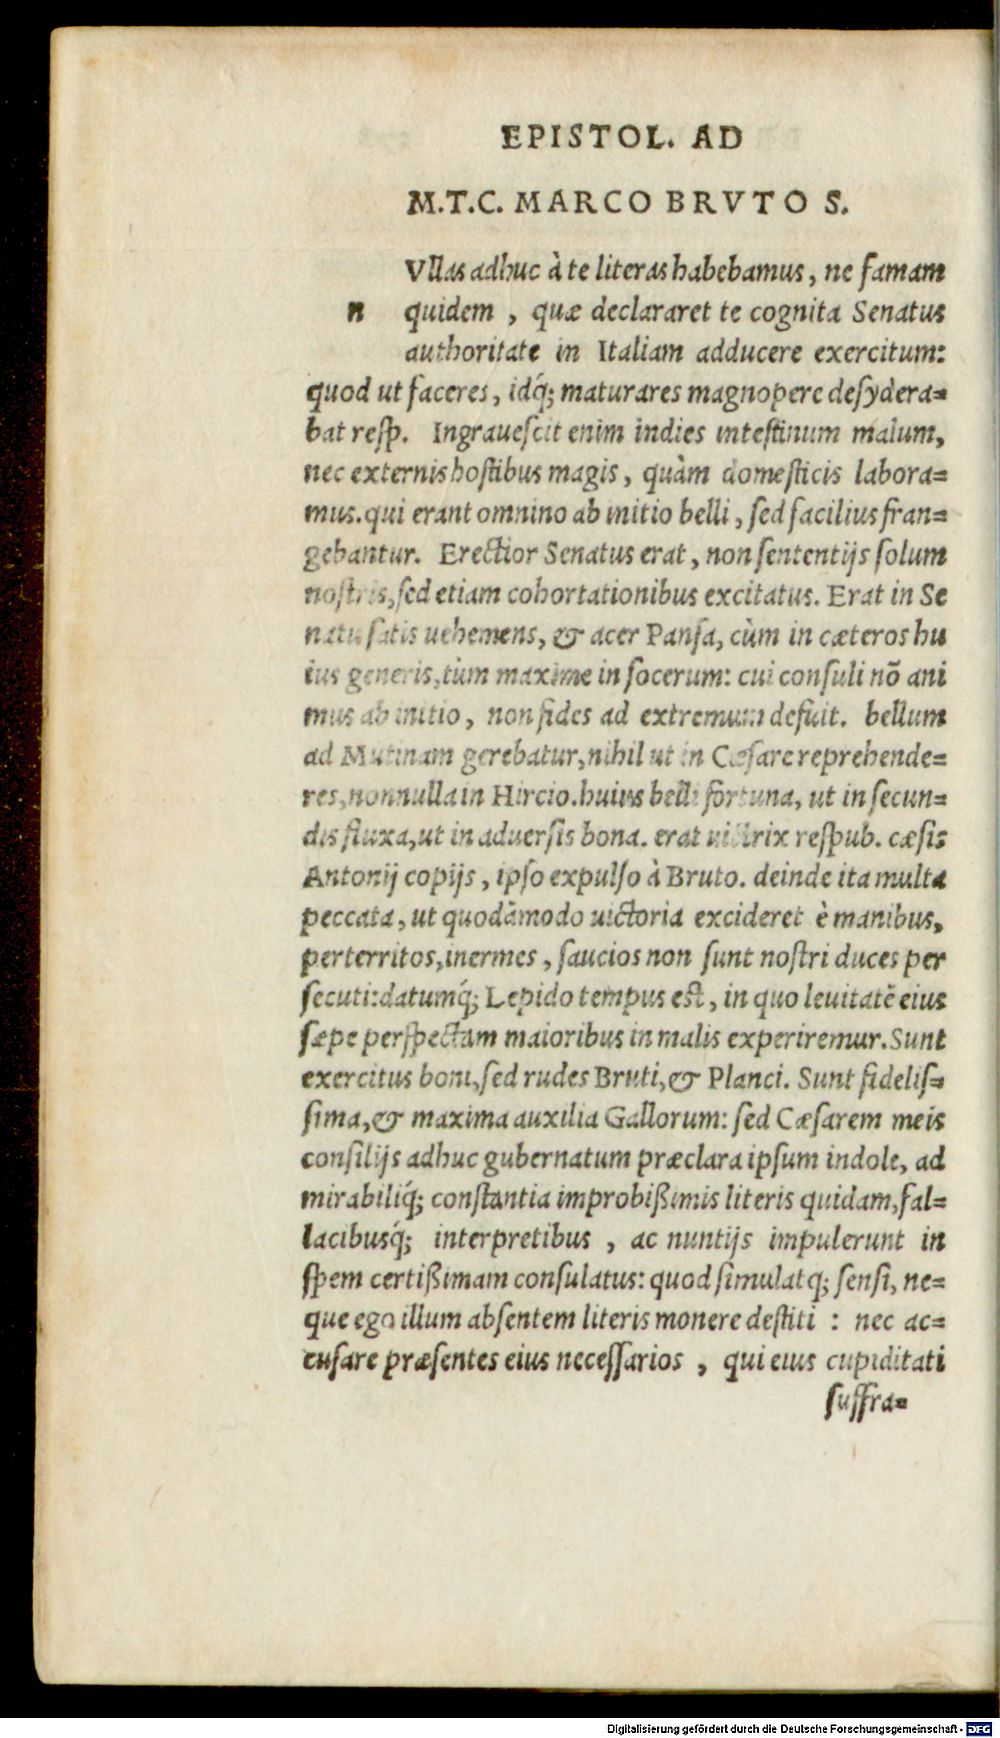 EPISTOL. AD
M.T.C. MARCO BRVTO S.
Vllas adhuc à te literas habebamus, ne famam
n quidem, quæ declararet te cognita Senatus
authoritate in Italiam adducere exercitum:
quod ut faceres, idq́; maturares magnopere desydera-
bat resp. Ingrauescit enim indies intestinum malum,
nec externis hostibus magis, quàm domesticis labora-
mus. qui erant omnino ab initio belli, sed facilius fran-
gebantur. Erectior Senatus erat, non sententijs solum
nostris, sed etiam cohortationibus excitatus. Erat in Se
natu satis uehemens, & acer Pansa, cùm in cæteros hu
ius generis, tùm maxime in socerum: cui consuli nõ ani
mus ab initio, non fides ad extremum defuit. bellum
ad Mutinam gerebatur, nihil ut in Cæsare reprehende-
res, nonnulla in Hircio. huius belli fortuna, ut in secun-
dis fluxa, ut in aduersis bona. erat uictrix respub. cæsis
Antonij copijs, ipso expulso à Bruto. deinde ita multa
peccata, ut quodãmodo uictoria excideret è manibus,
perterritos, inermes, saucios non sunt nostri duces per
secuti: datumq́; Lepido tempus est, in quo leuitatẽ eius
sæpe perspectam maioribus in malis experiremur. Sunt
exercitus boni, sed rudes Bruti, & Planci. Sunt fidelis-
sima, & maxima auxilia Gallorum: sed Cæsarem meis
consilijs adhuc gubernatum præclara ipsum indole, ad
mirabiliq́; constantia improbißimis literis quidam, fal-
lacibusq́; interpretibus, ac nuntijs impulerunt in
spem certißimam consulatus: quod simulatq; sensi, ne-
que ego illum absentem literis monere destiti : nec ac-
cusare præsentes eius necessarios, qui eius cupiditati
suffra-
Digitalisierung gefördert durch die Deutsche Forschungsgemeinschaft - DFG